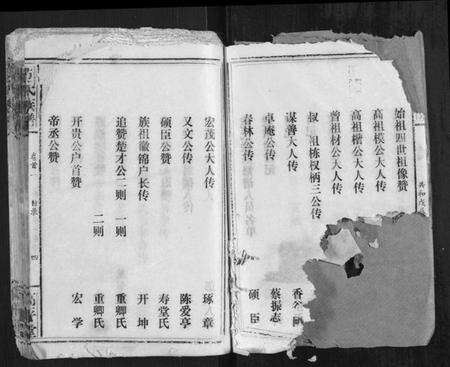 始祖四世祖像赞
高祖模公大人传
高祖楷公大人传
曾祖材公大人传
叔祖栋权柄三公传
谋善大人传 香
卓庵公传 蔡振志
春林公传 硕臣
宏茂公大人传 琢章
又文公传 陈爱亭
硕臣公赞 寿堂氏
族祖徽锦户长传 开坤
追赞楚才公二则 一则 重卿氏
二则 重卿氏
开贵公户首赞
帝丞公赞 宏学
卷首
四